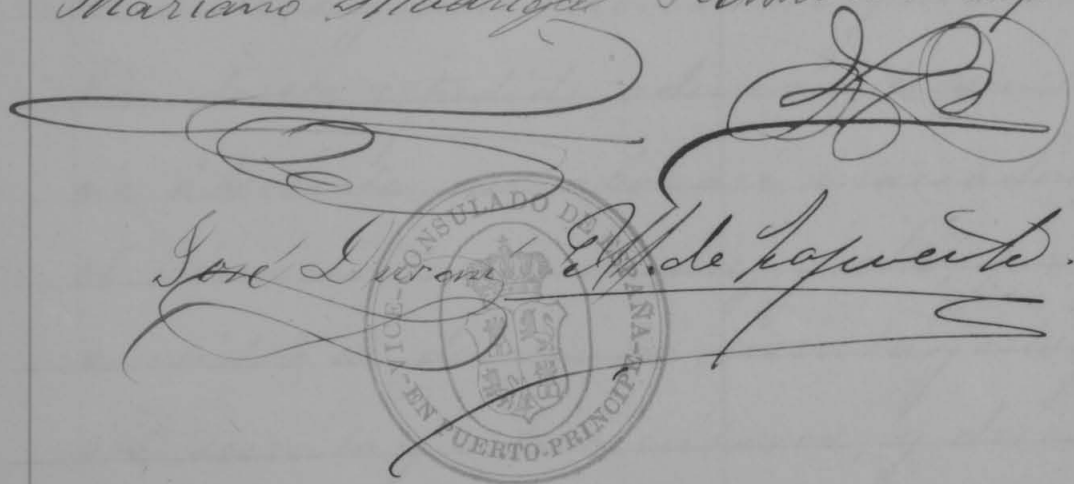 Mariano Madrigal
José Duran
de Lapuente.
VICE-CONSULADO DE ESPAÑA
-EN PUERTO-PRINCIPE-